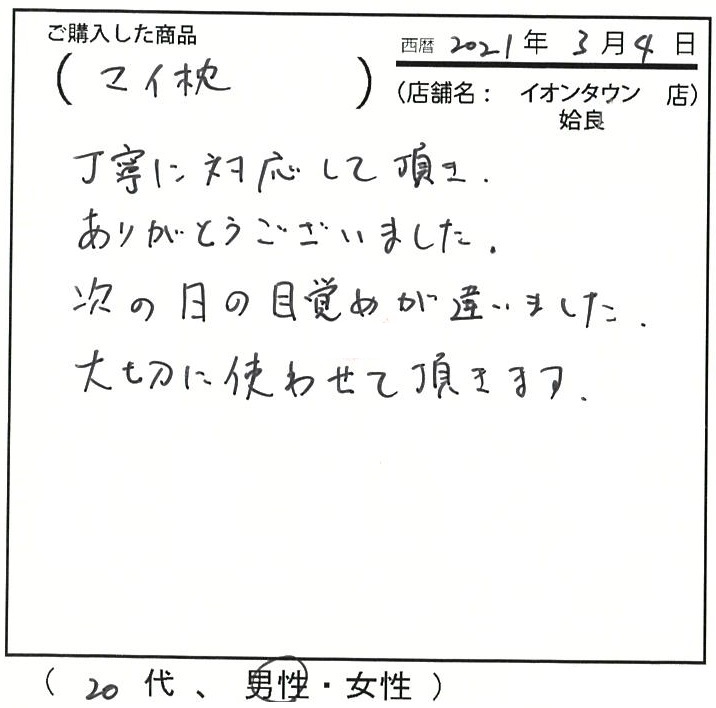 ご購入した商品
(マイ枕)
西暦 2021年 3月4日
(店舗名： イオンタウン 店)
姶良
丁寧に対応して頂き.
ありがとうございました.
次の日の目覚めが違いました.
大切に使わせて頂きます.
( 20代、男性・女性 )